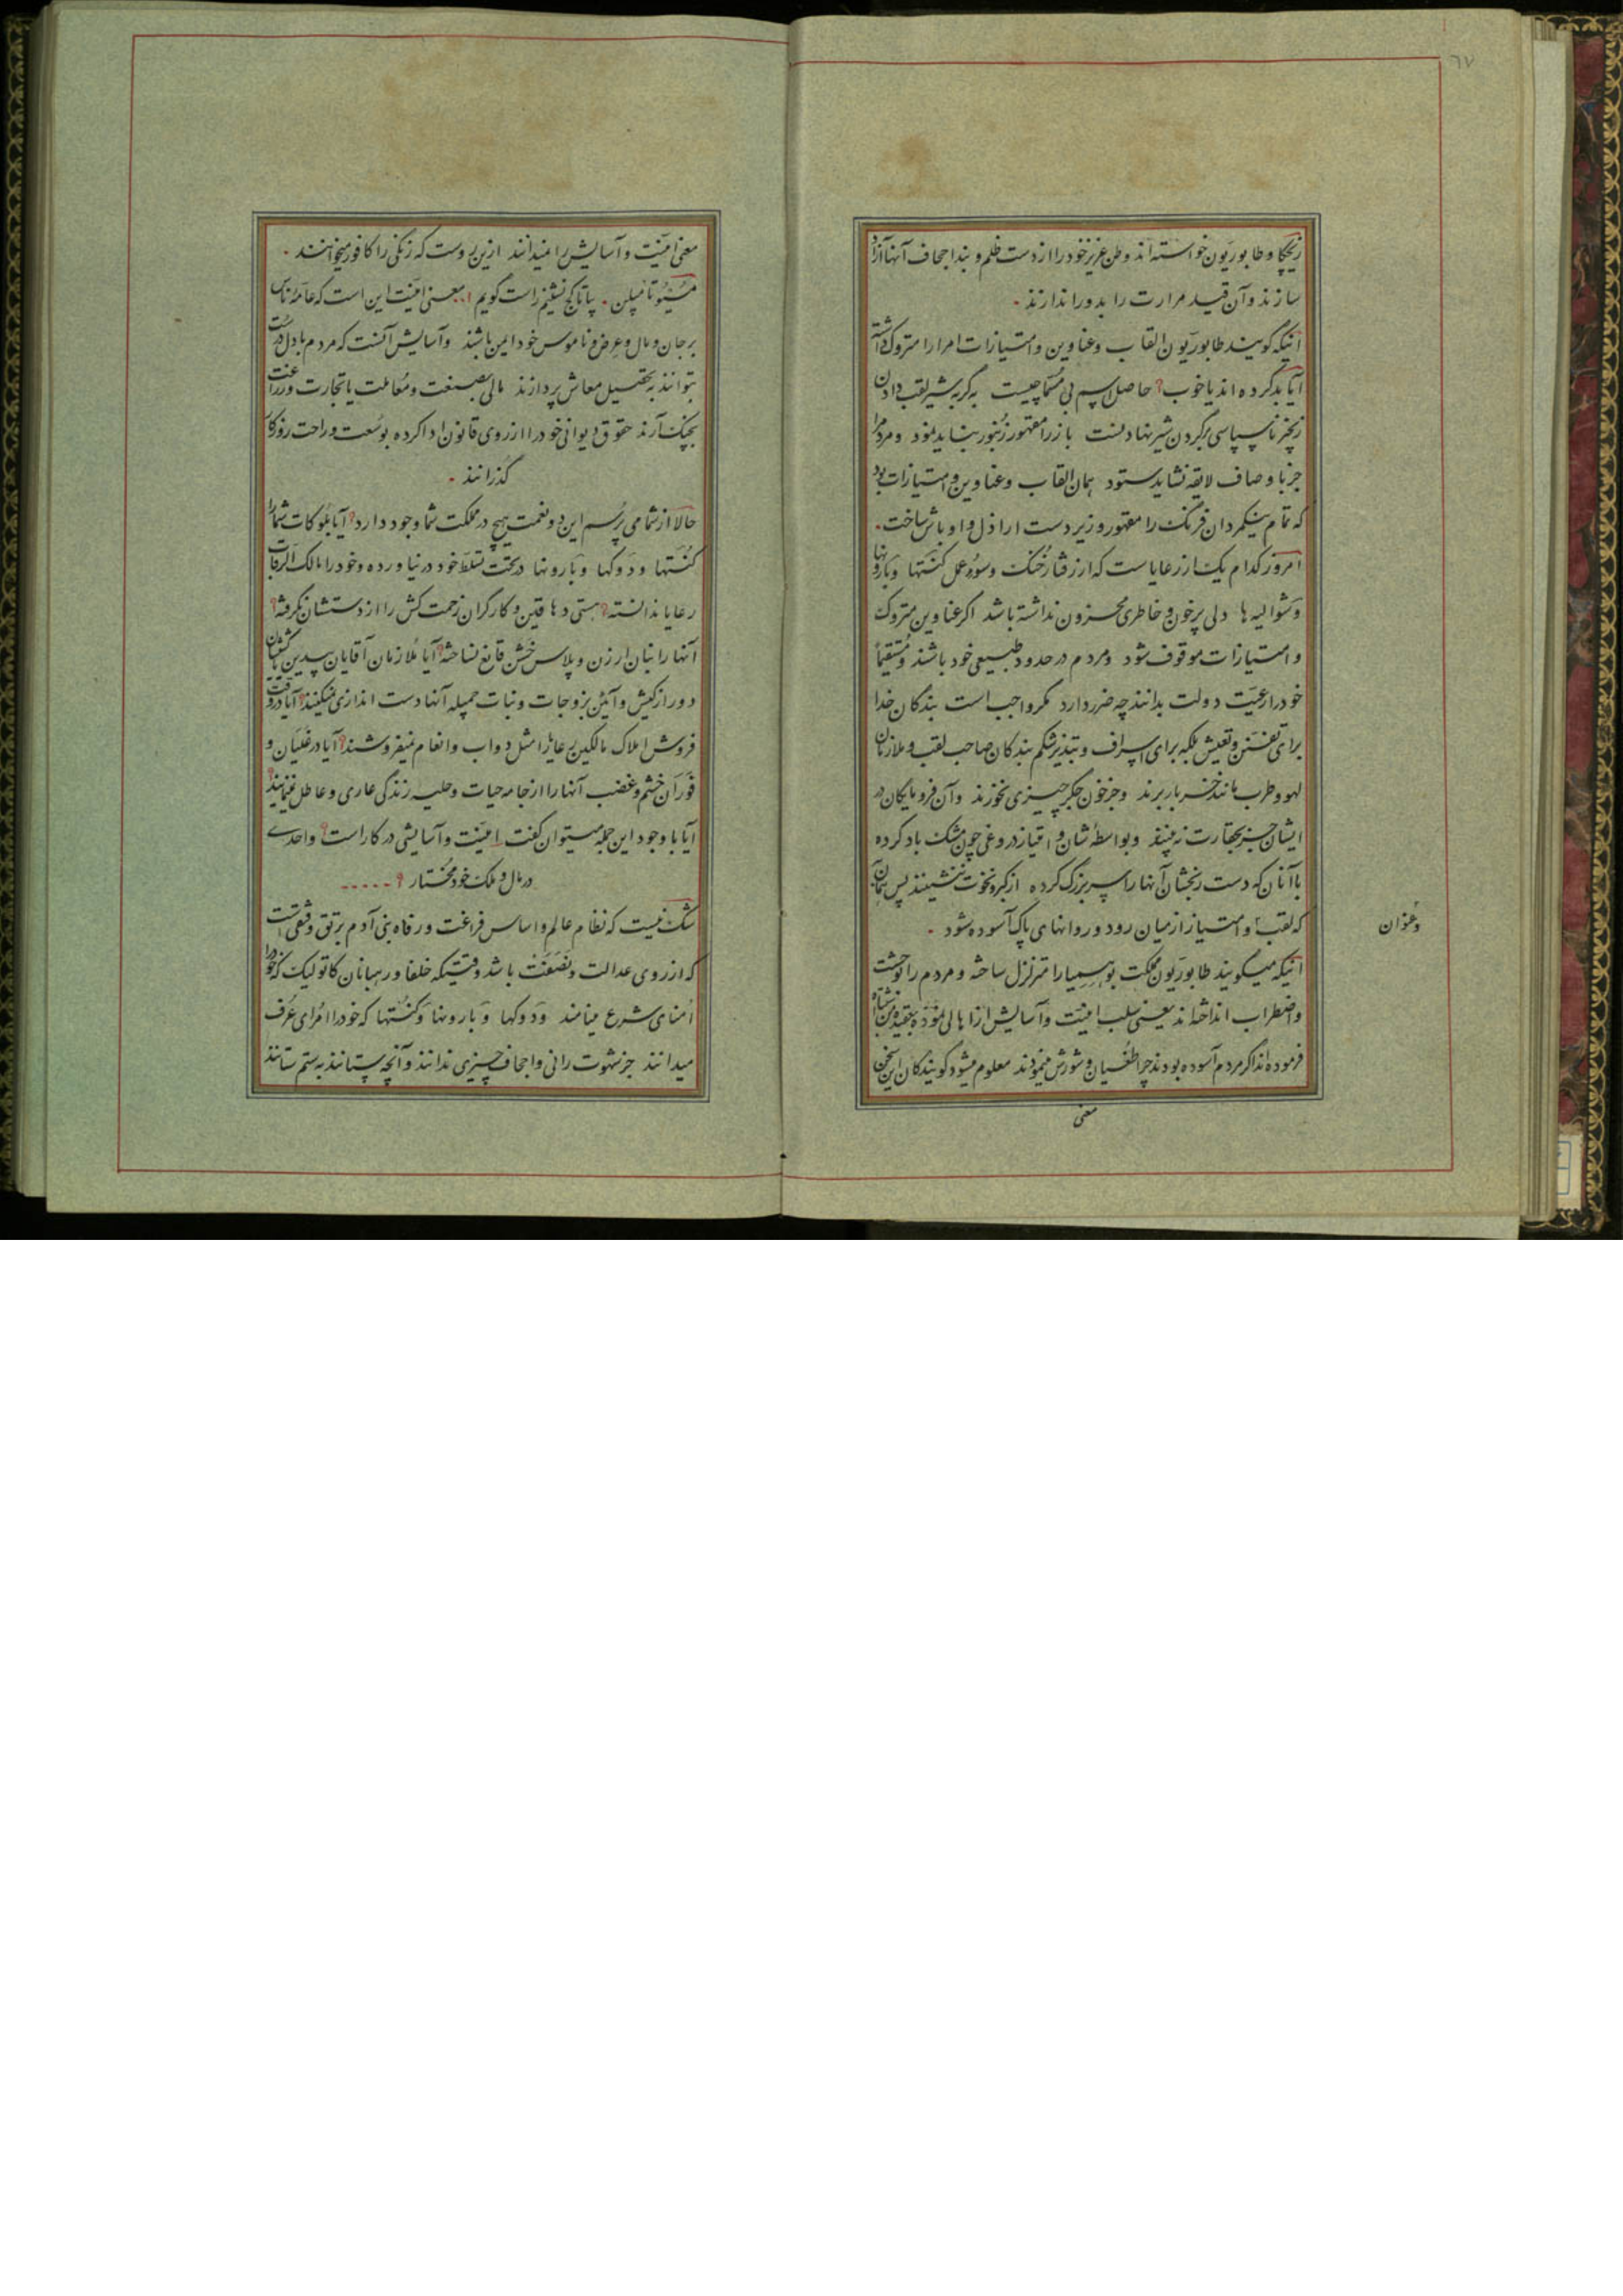 ٦٧
زیچکا و طابوریون خواسته‌اند وطن عزیز خود را از دست ظلم و بند اجحاف آنها آزاد
سازند و آن قید مرارت را بدور اندازند.
اینکه گویند طابوریون القاب و عناوین و امتیازات امرا را متروک داشته
آیا بد کرده اند یا خوب؟ حاصل اسم بی مسما چیست به گربه شیر لقب دادن
زنجیر ناسپاسی بر گردن شیر نهادنست باز را مقهور زنبور نباید نمود و مردم را
جز باوصاف لایقه نشاید ستود همان القاب و عناوین و امتیازات بود
که تمام نیکمردان فرنگ را مقهور و زیردست اراذل و اوباش ساخت.
امروز کدام یک از رعایاست که از رفتار خنک و سوء عمل کنتها و بارونها
و شوالیه ها دلی پرخون و خاطری محزون نداشته باشد اگر عناوین متروک
و امتیازات موقوف شود و مردم در حدود طبیعی خود باشند و مستقیماً
خود را رعیت دولت بدانند چه ضرر دارد مگر واجب است بندگان خدا
برای تفنن و تعیش بلکه برای اسراف و تبذیر شکم بندگان صاحب لقب و ملازمان
لهو و طرب مانند خر بار برند و جز خون جگر چیزی نخورند و آن فرومایگان در
ایشان جز بحقارت نه بینند و بواسطهٔ شان و امتیاز دروغی چون مشک باد کرده
با آنان که دست رنجشان آنها را سربزرگ کرده از کبر و نخوت ننشینند پس همان
که لقب و امتیاز از میان رود و روانهای پاک آسوده شود.
و عنوان
اینکه میگویند طابوریون مملکت بوهیمیا را متزلزل ساخته و مردم را بوحشت
و اضطراب انداخته‌اند یعنی سلب امنیت و آسایش از اهالی نموده بعقیدهٔ من اشتباه
فرموده‌اند اگر مردم آسوده بودند چرا طغیان و شورش مینمودند معلوم میشود گویندگان این سخن
معنی
معنی امنیت و آسایش را نمیدانند ازین روست که زنگی را کافور میخوانند.
مسیو تامپلن. بیا تا کج نشینم راست گویم!.. معنی امنیت این است که عامهٔ ناس
بر جان و مال و عرض و ناموس خود ایمن باشند و آسایش آنست که مردم با دل درست
بتوانند به تحصیل معاش پردازند مالی بصنعت و معاملت یا تجارت و زراعت
بچنگ آرند حقوق دیوانی خود را از روی قانون ادا کرده بوسعت و راحت روزگار
گذرانند.
حالا از شما می پرسم این دو نعمت هیچ در مملکت شما وجود دارد؟ آیا بلوکات شما را
کنتها و دوکها و بارونها در تحت تسلط خود در نیاورده و خود را مالک الرقاب
رعایا ندانسته؟ هستی دهاقین و کارگران زحمت کش را از دستشان نگرفته؟
آنها را بنان ارزن و پلاس خشن قانع نساخته؟ آیا ملازمان آقایان بیدین یا کشیشان
دور از کیش و آئین بزوجات و بنات جمیله آنها دست اندازی نمیکنند؟ آیا در وقت
فروش املاک مالکین رعایا را مثل دواب و انعام نمیفروشند؟ آیا در غلیان و
فوران خشم و غضب آنها را از جامه حیات و حلیه زندگی عاری و عاطل نمینمایند؟
آیا با وجود این جمله میتوان گفت امنیت و آسایشی در کار است؟ و احدی
در مال و ملک خود مختار؟.....
شک نیست که نظام عالم و اساس فراغت و رفاه بنی آدم برتق و فتقی است
که از روی عدالت و نصفت باشد وقتیکه خلفا و رهبانان کاتولیک که خود را
امنای شرع مینامند و دوکها و بارونها و کنتها که خود را امرای عرف
میدانند جز شهوت رانی و اجحاف چیزی ندانند و آنچه بستانند به ستم ستانند